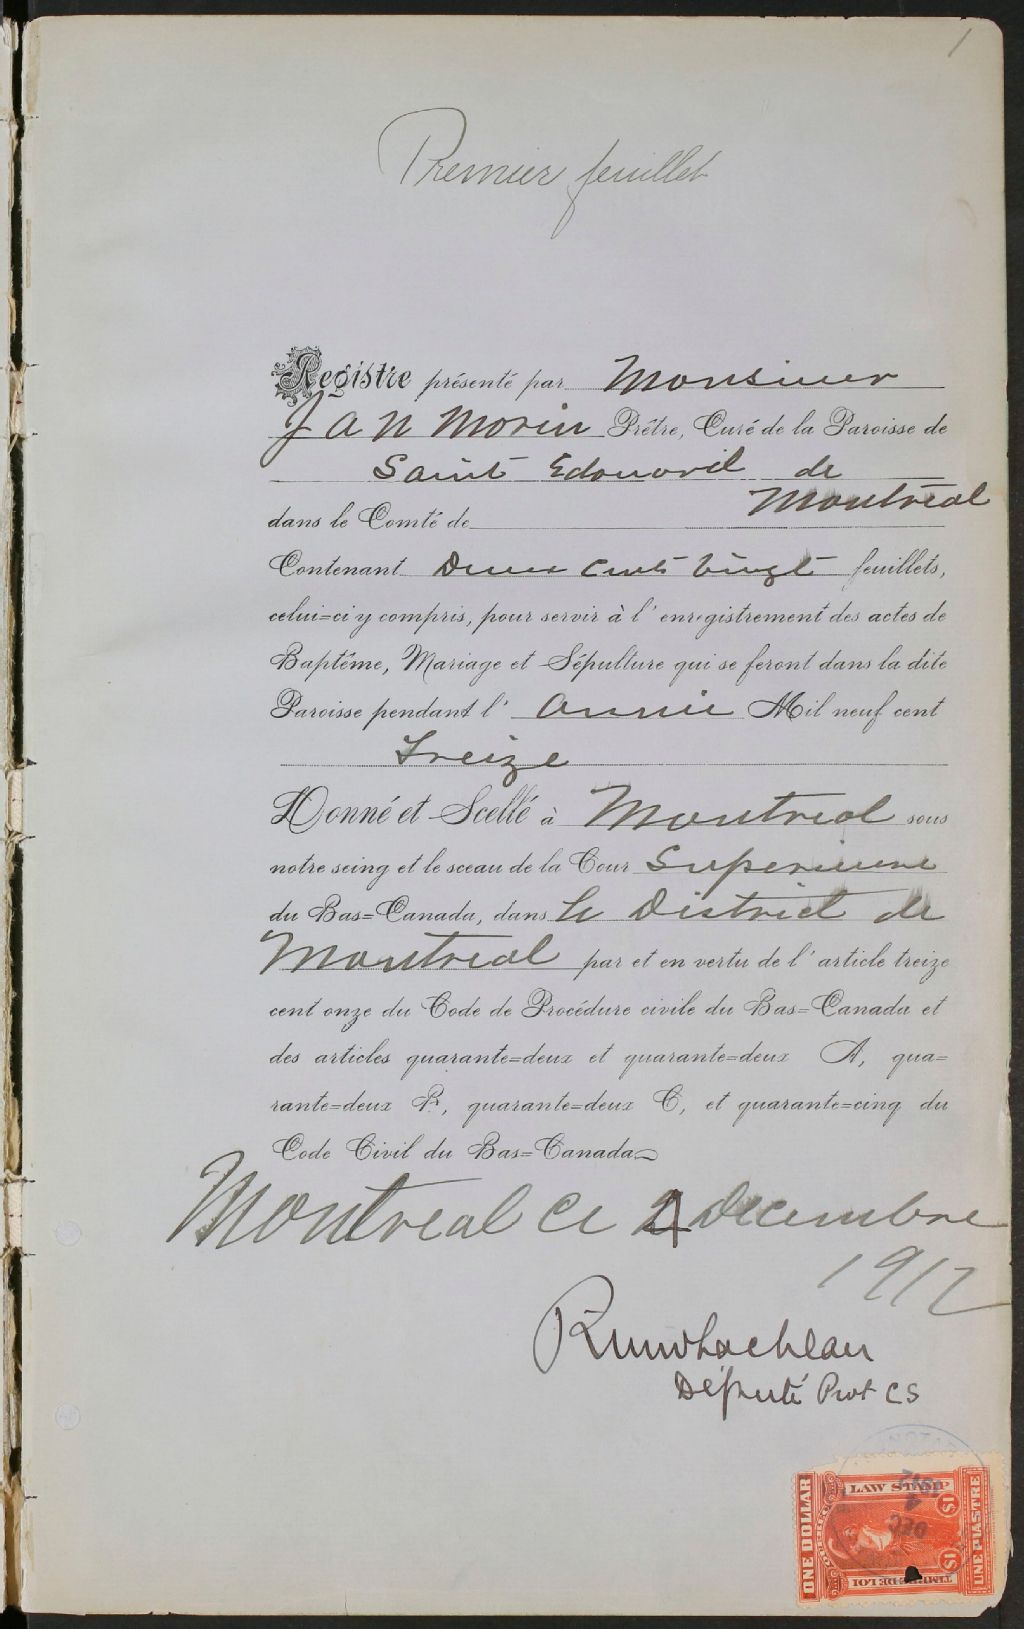 1
Premier feuillet
Registre présenté par Monsieur
J A N Morin Prêtre, Curé de la Paroisse de
Saint Edouard de
Montréal
dans le Comté de
Contenant Deux cents vingt feuillets,
celui=ci y compris, pour servir à l'enregistrement des actes de
Baptême, Mariage et Sépulture qui se feront dans la dite
Paroisse pendant l' année Mil neuf cent
Treize
Donné et Scellé à Montreal sous
notre seing et le sceau de la Cour Superieure
du Bas=Canada, dans le District de
Montreal par et en vertu de l'article treize
cent onze du Code de Procédure civile du Bas=Canada et
des articles quarante=deux et quarante=deux A, qua=
rante=deux B, quarante=deux C, et quarante=cinq du
Code Civil du Bas=Canada
Montreal ce 4 Decembre
1912
Député Prot CS
ONE DOLLAR
LAW STAMP
$1
TIMBRE DE LOI
UNE PIASTRE
DEC 4 1912